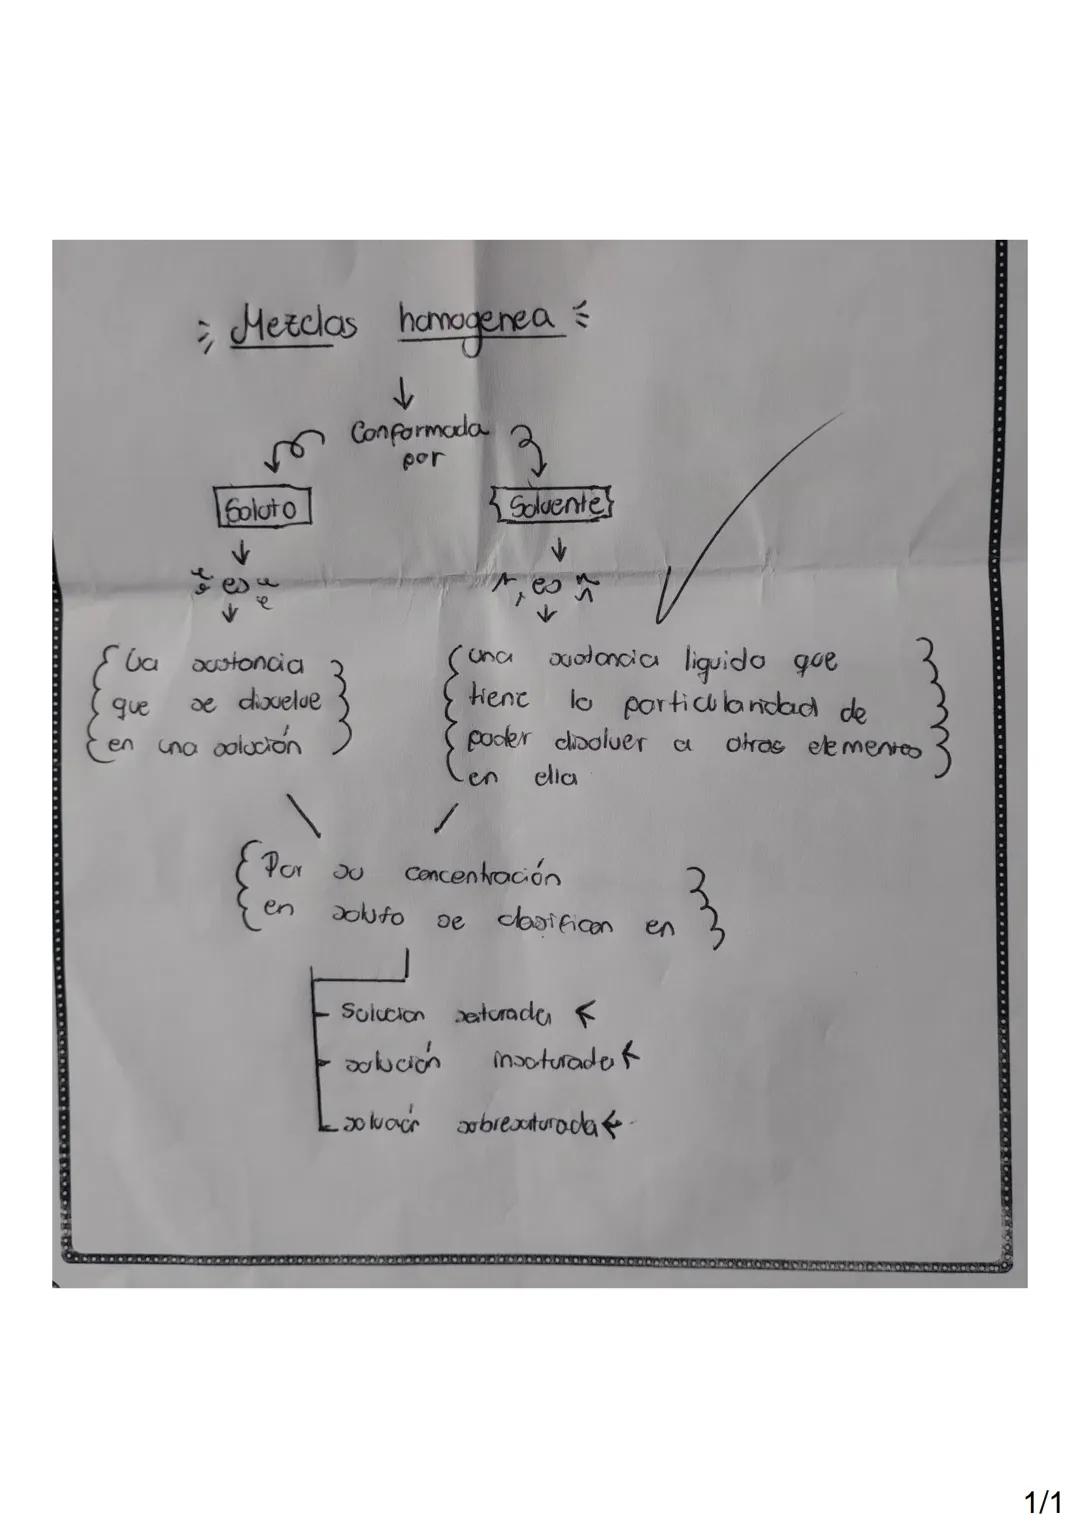 Mezclas homogenea
Conformada
por
Soluto
Solvente
es
es
La sustancia
que se disuelve
en una solución
una sustancia liquida que
tiene la particularidad de
poder disolver a otros elementos
en ella
Por su concentración
en soluto se clasifican en
Solucion saturada
solución insaturada
solución sobresaturada
1/1